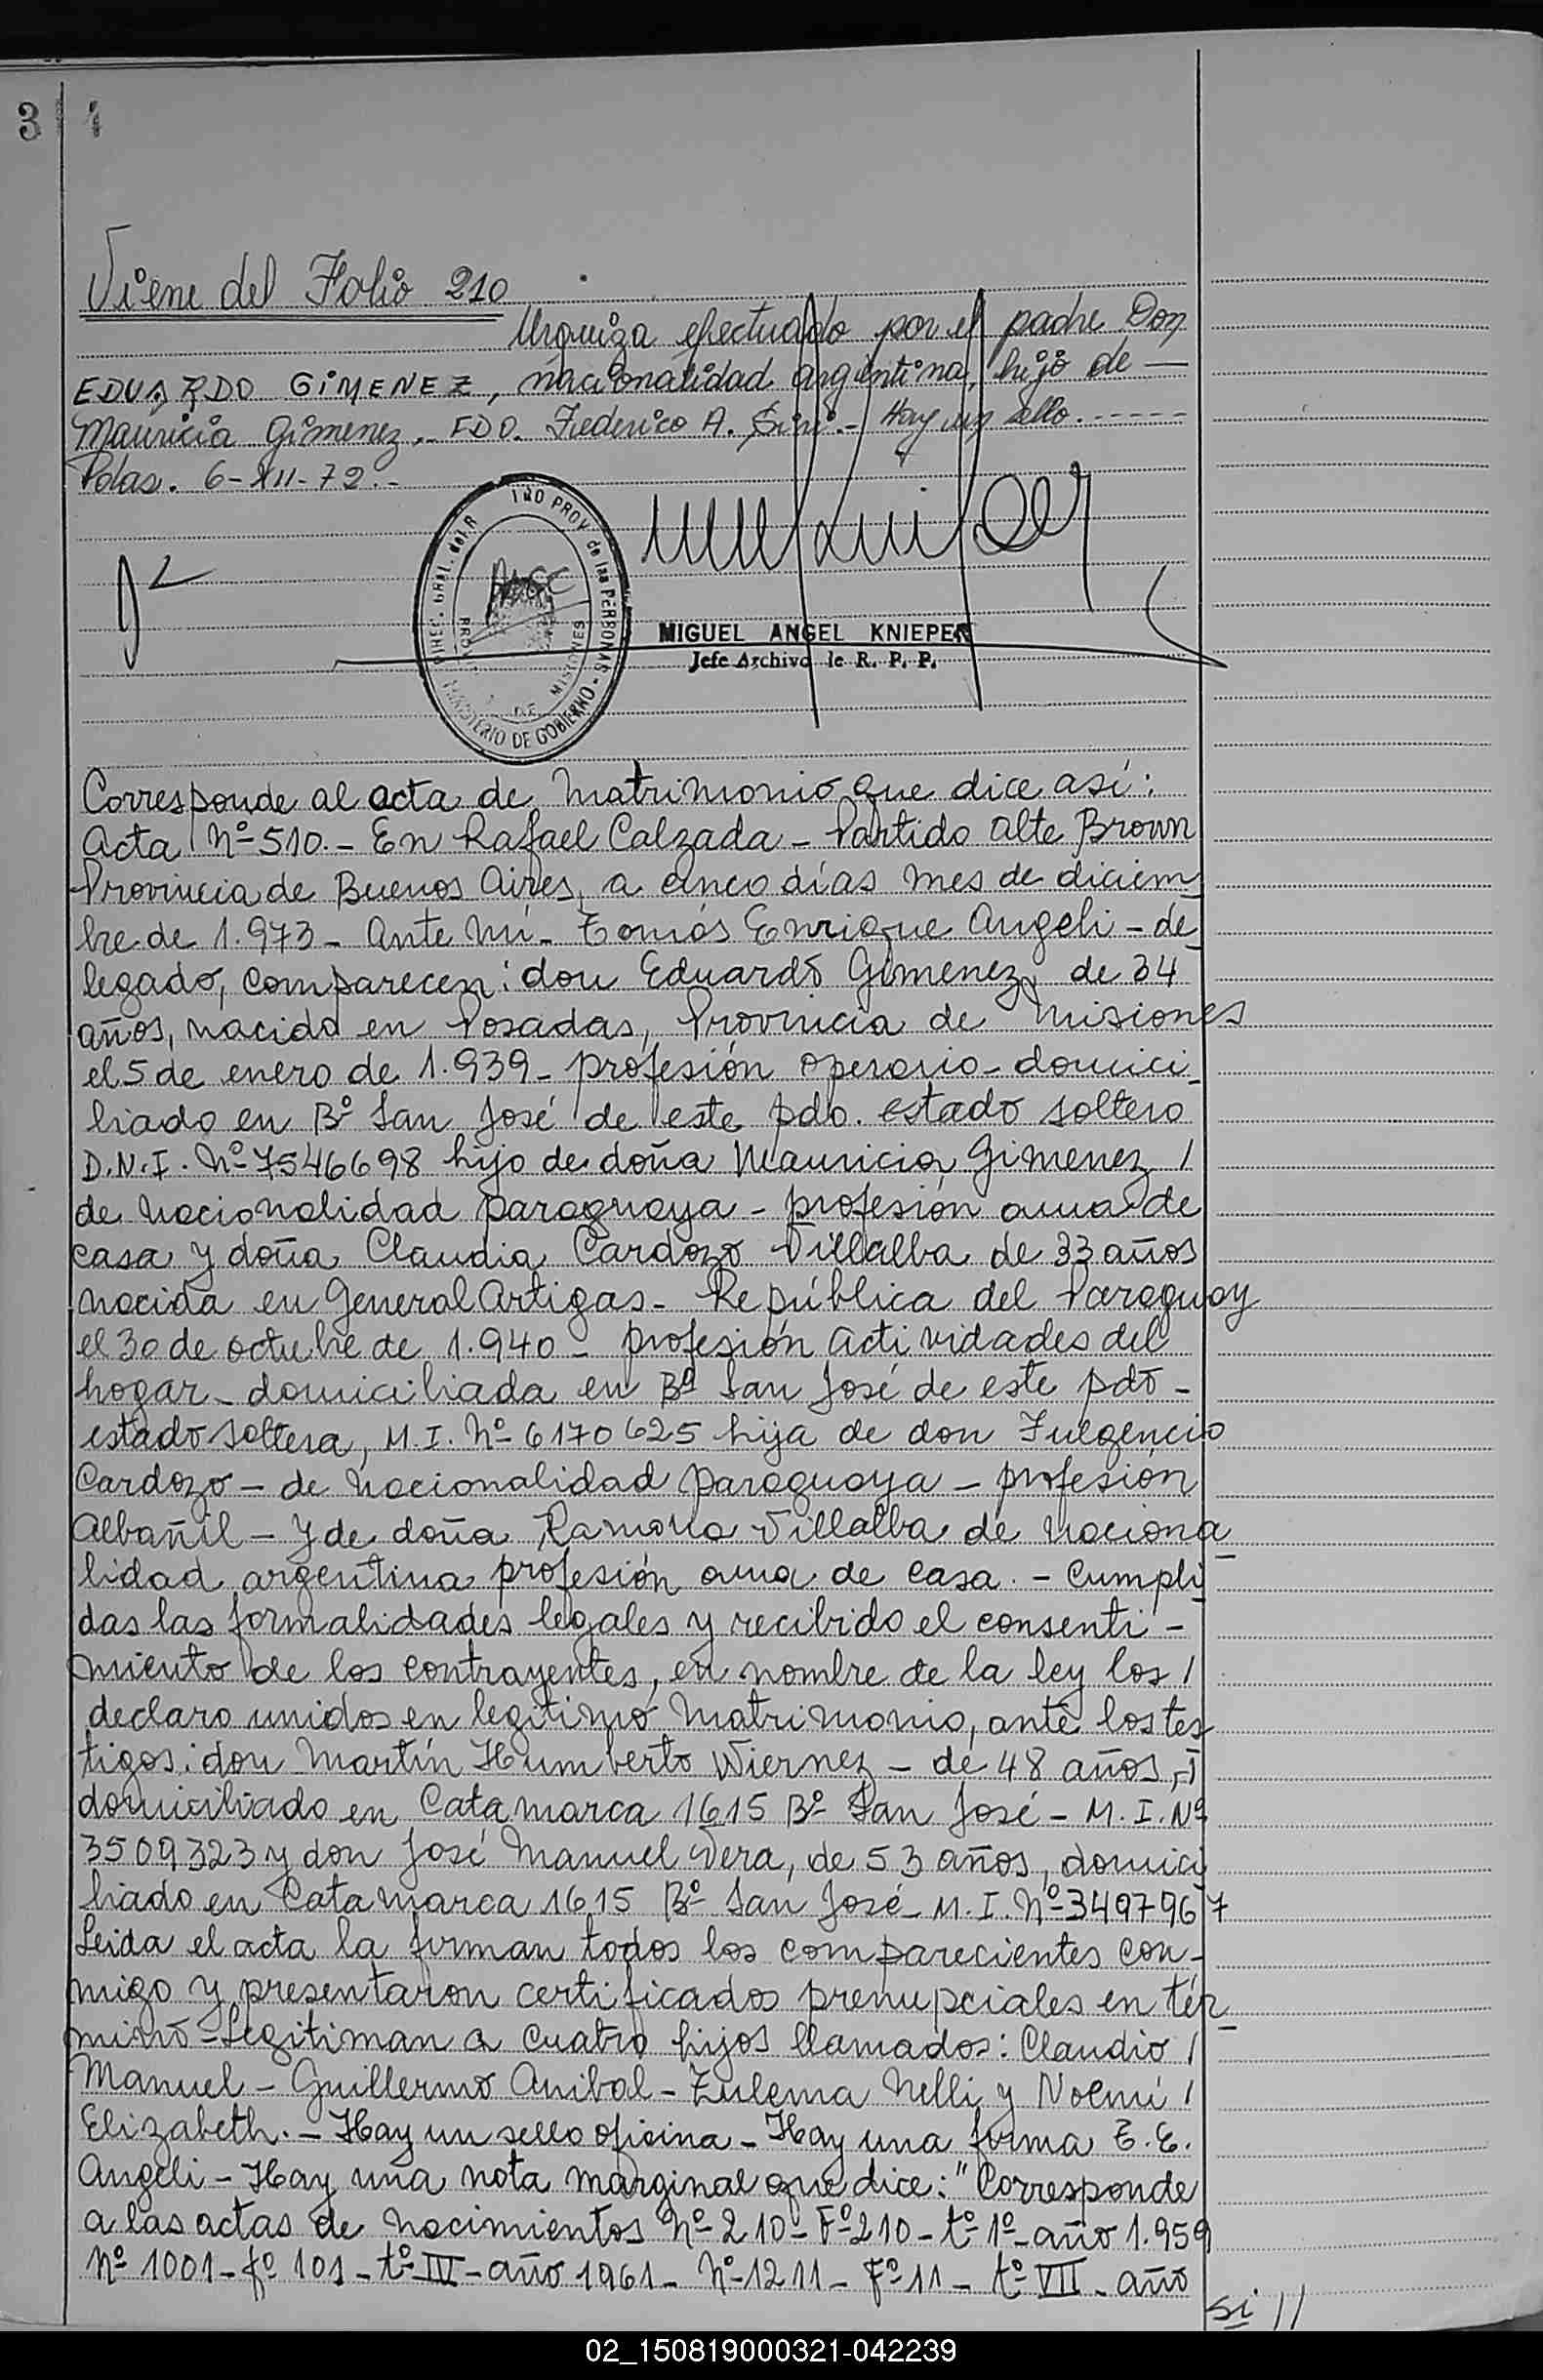 3 1
Viene del Folio 210
Urquiza efectuado por el padre Don
EDUARDO GIMENEZ, nacionalidad argentina, hijo de —
Mauricia Gimenez.- FDO. Federico A. - Hay un sello.-----
Pdas. 6-XII-72.-
MIGUEL ANGEL KNIEPER
Jefe Archivo de R. P. P.
MINISTERIO DE GOBIERNO
Corresponde al acta de matrimonio que dice así:
Acta Nº 510.- En Rafael Calzada - Partido Alte Brown
Provincia de Buenos Aires, a cinco días mes de diciem
bre de 1.973 - Ante mí - Tomás Enrique Angeli - de
legado, comparecen: don Eduardo Gimenez, de 34
años, nacido en Posadas, Provincia de Misiones
el 5 de enero de 1.939 - profesión operario - domici_
liado en Bº San José de este pdo. estado soltero
D.N.I. Nº 7546698 hijo de doña Mauricia Gimenez /
de nacionalidad paraguaya - profesión ama de
casa y doña Claudia Cardozo Villalba de 33 años
nacida en General Artigas - República del Paraguay
el 30 de octubre de 1.940 - profesión actividades del
hogar - domiciliada en Bº San José de este pdo -
estado soltera, M.I. Nº 6170625 hija de don Fulgencio
Cardozo - de nacionalidad paraguaya - profesión
Albañil - y de doña Ramona Villalba de naciona_
lidad argentina profesión ama de casa. - Cumpli
das las formalidades legales y recibido el consenti -
miento de los contrayentes, en nombre de la ley los /
declaro unidos en legítimo matrimonio, ante los tes
tigos: don Martín Humberto Wiernez - de 48 años,
domiciliado en Catamarca 1615 Bº San José - M.I. Nº
3509323 y don José Manuel Vera, de 53 años, domici
liado en Catamarca 1615 Bº San José - M.I. Nº 3497967
Leida el acta la firman todos los comparecientes con-
migo y presentaron certificados prenupciales en tér_
mino - Legitiman a cuatro hijos llamados: Claudio /
Manuel - Guillermo Anibal - Zulema Nelli y Noemí /
Elizabeth. - Hay un sello oficina - Hay una firma T.E.
Angeli - Hay una nota marginal que dice: "Corresponde
a las actas de nacimientos Nº 210 - Fº 210 - tº 1º - año 1.959
Nº 1001 - fº 101 - tº IV - año 1961 - Nº 1211 - Fº 11 - tº VII - año
si //
02_150819000321-042239